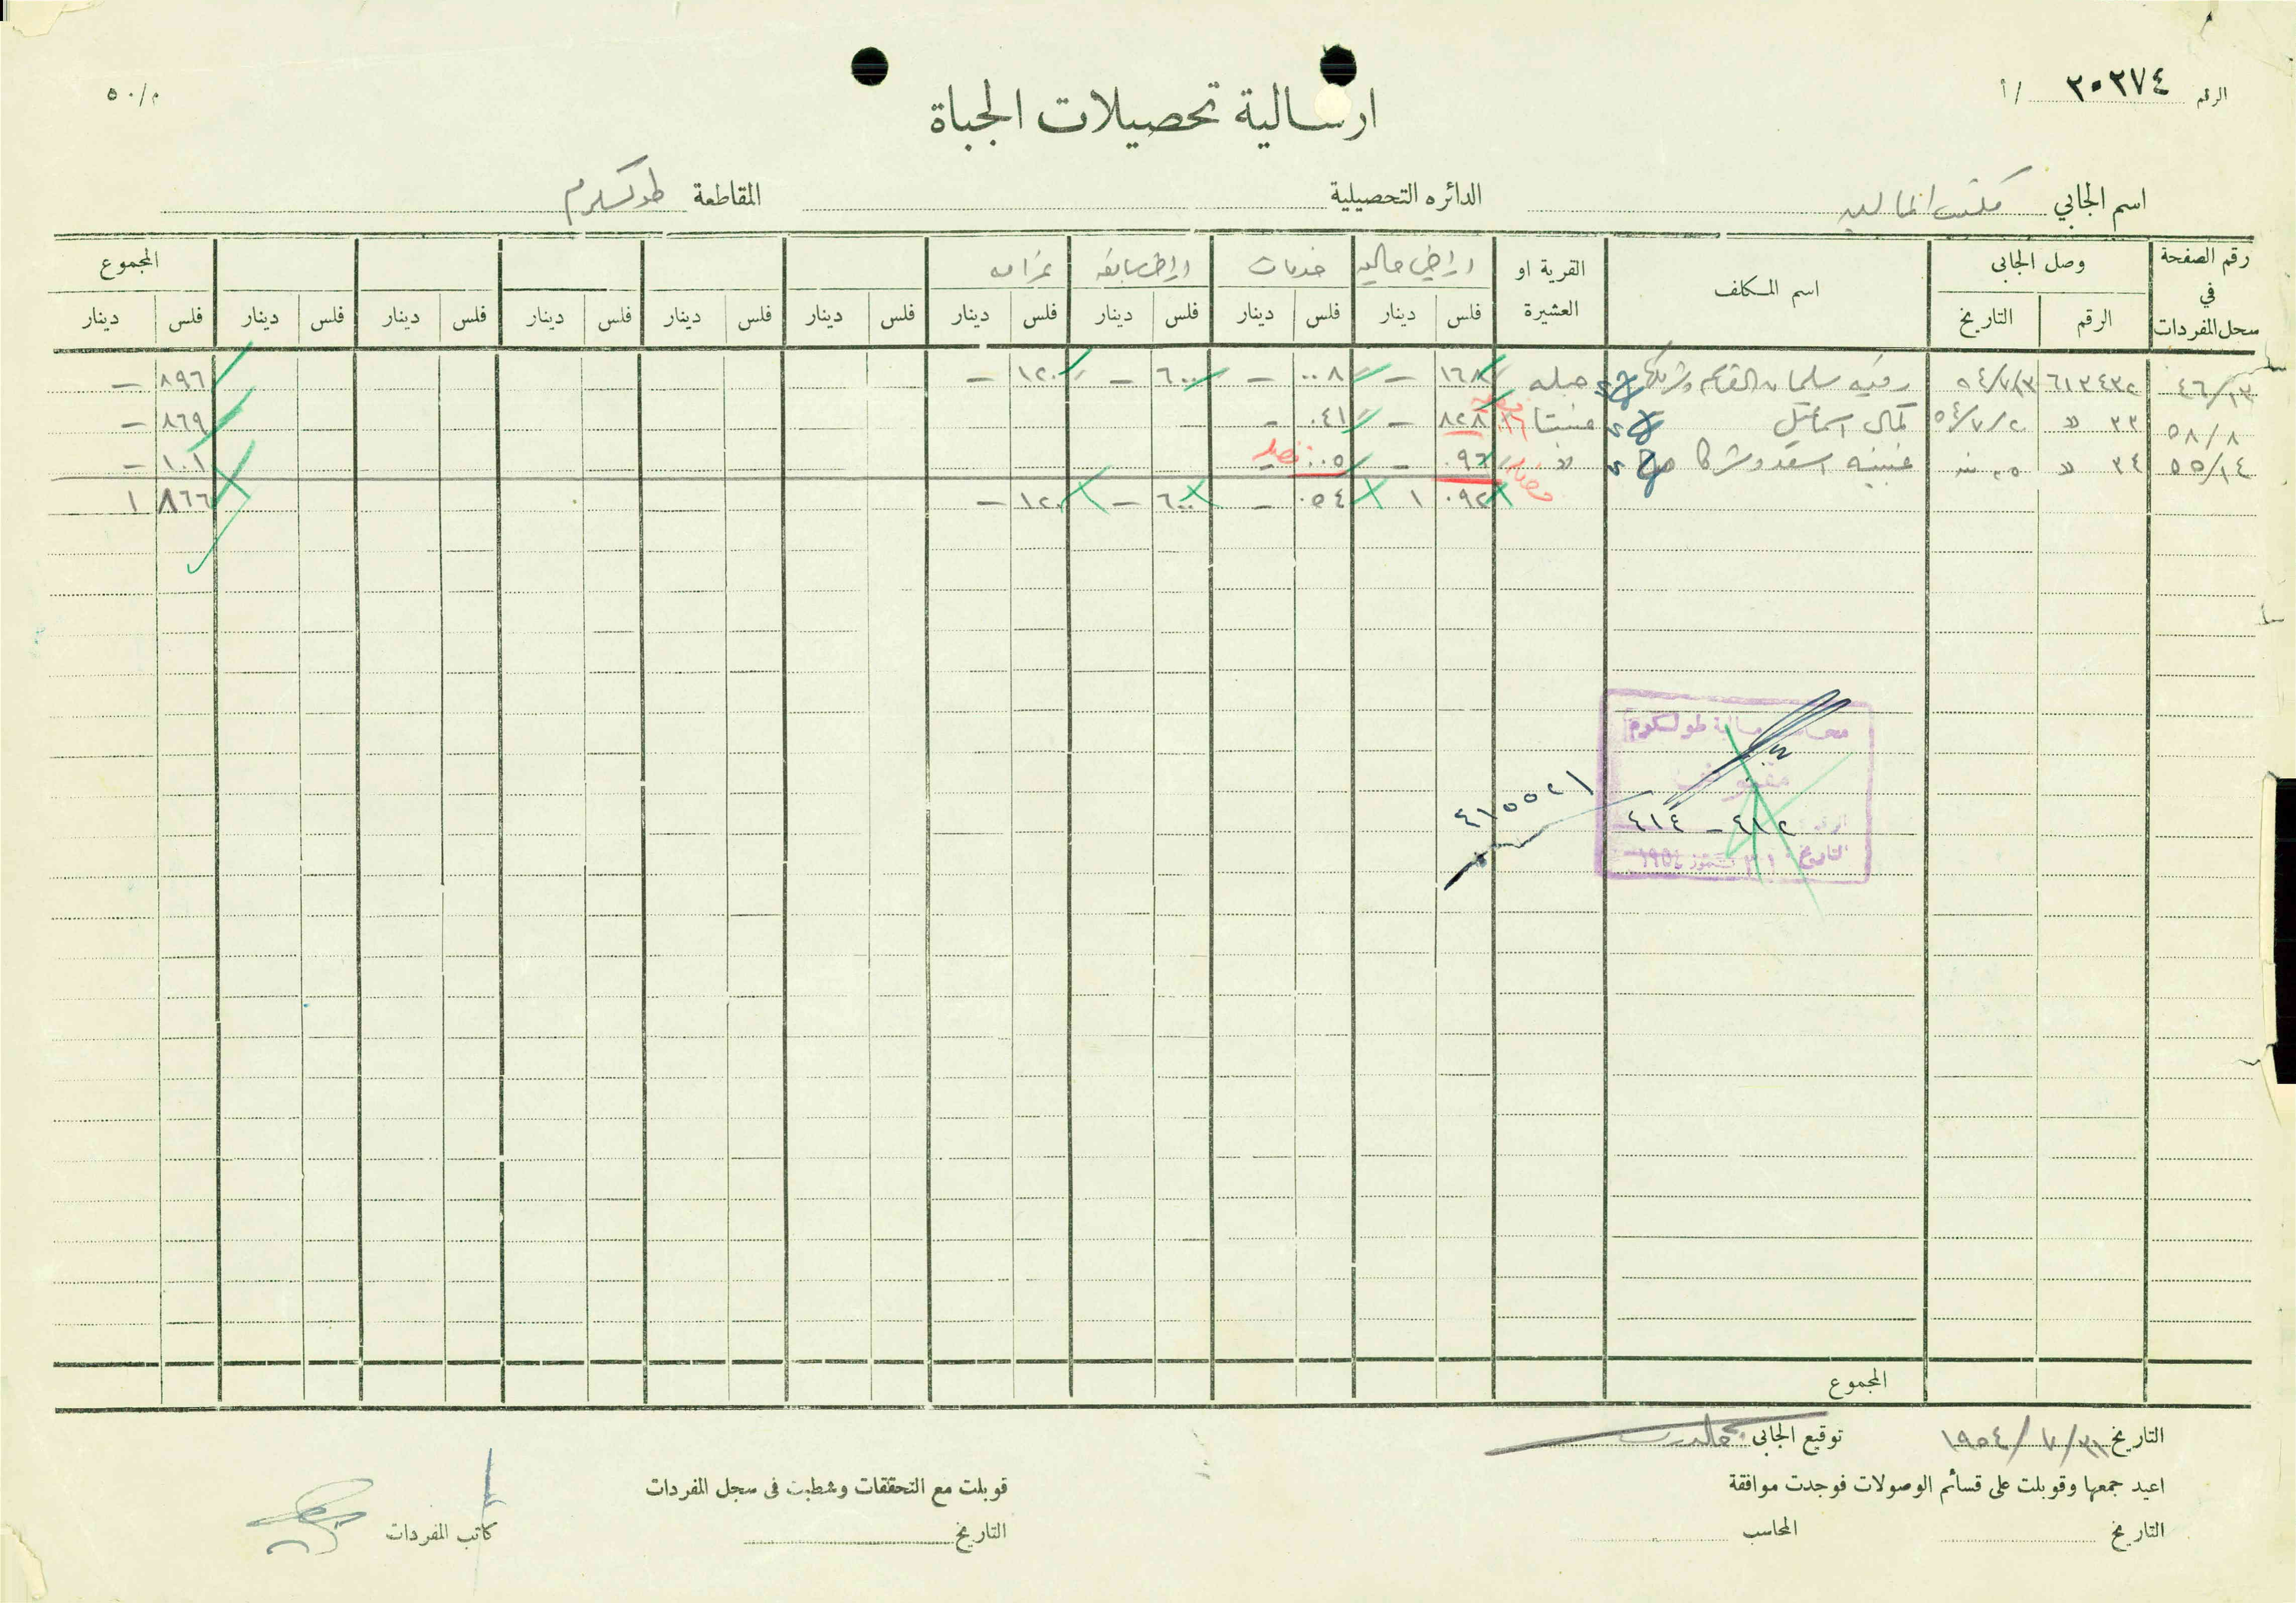 م/٥٠
الرقم ٢٠٢٧٤ /أ
ارسالية تحصيلات الجباة
اسم الجابي مكتب المالية الدائره التحصيلية المقاطعة طولكرم
رقم الصفحة في سجل المفردات وصل الجابى اسم المكلف القرية او العشيرة اراضي حاليه خدمات اراضي سابقه غرامه المجموع
الرقم التاريخ فلس دينار فلس دينار فلس دينار فلس دينار فلس دينار فلس دينار فلس دينار فلس دينار فلس دينار
٤٦/١٣ ٦١٣٤٣٢ ٥٤/٧/٣ رقيه سليمان القاسم وشريكها ١٦٨ - ٠٠٨ - ٦٠٠ - ١٢٠ - ٨٩٦ -
٥٨/٨ ٣٣ » ٥٤/٧/٢٠ كمال اسماعيل عنبتا ٨٢٨ - ٠٤١ - ٨٦٩ -
٥٥/١٤ ٣٤ » ٢٥ منه اسعد وشركا » ٠٩٦ - ٠٠٥ ١٠١ -
٠٩٢ ١ ٠٥٤ - ٦٠٠ - ١٢٠ - ٨٦٦ ١
مالية طولكرم
الرقم ٤١٢ - ٤١٤
التاريخ ٣١ تموز ١٩٥٤
٤١٥٥٢١
المجموع
التاريخ ٣١/٧/١٩٥٤ توقيع الجابى
اعيد جمعها وقوبلت على قسائم الوصولات فوجدت موافقة
التاريخ المحاسب
قوبلت مع التحققات وشطبت فى سجل المفردات
التاريخ كاتب المفردات